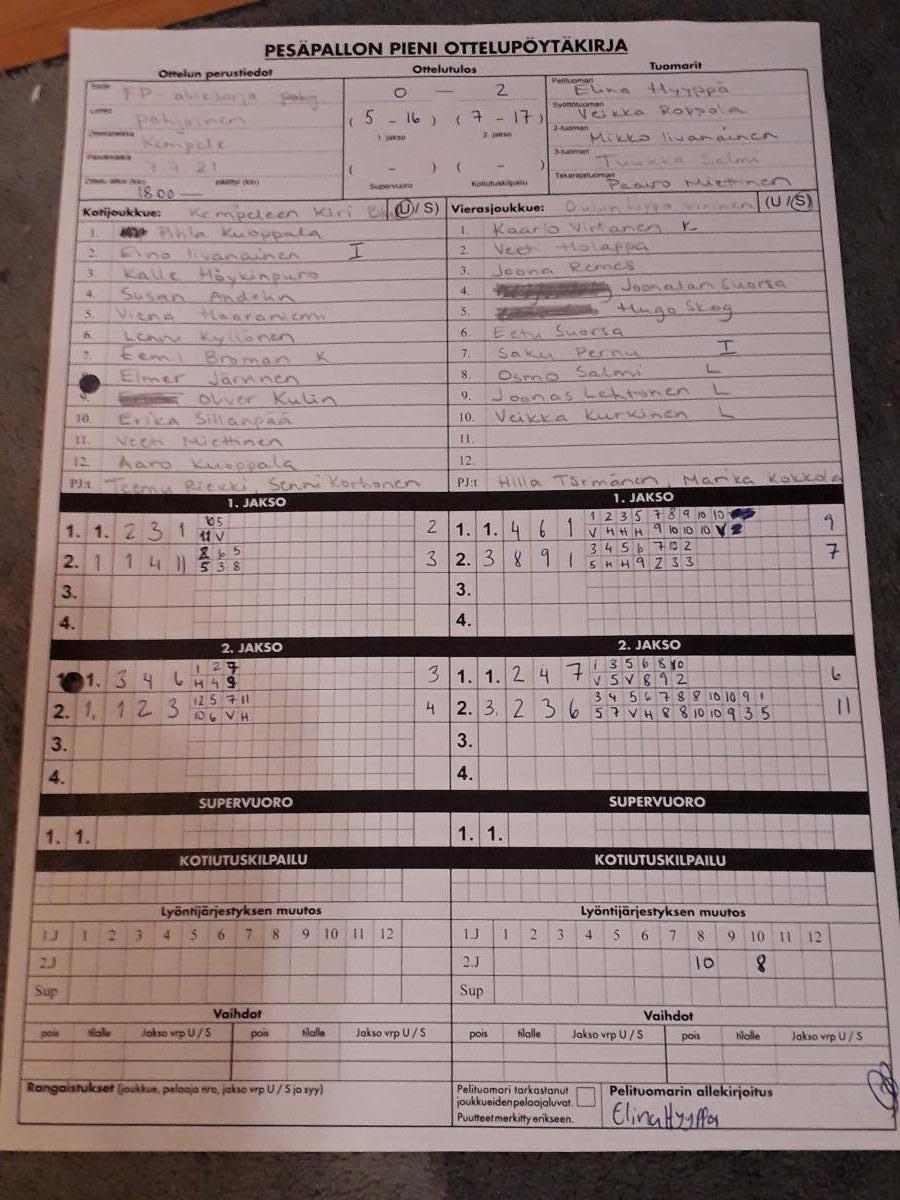 PESÄPALLON PIENI OTTELUPÖYTÄKIRJA
Ottelun perustiedot Ottelutulos Tuomarit
Sarja
Lohko Pohjoinen
Ottelupaikka Kempele
Päivämäärä 7.7.21
Ottelu alkoi (klo) 18.00 — päättyi (klo)
0 — 2
( 5 - 16 ) ( 7 - 17 )
1. jakso 2. jakso
( - ) ( - )
Supervuoro Kotiutuskilpailu
Pelituomari Elina Hyyppä
Syöttötuomari Veikka Roppola
2-tuomari Mikko Iivanainen
3-tuomari Tuukka Salmi
Takarajatuomari Paavo Miettinen
Kotijoukkue: Kempeleen Kiri (U/S)
1. Pihla Kuoppala
2. Eino Iivanainen I
3. Kalle Höykinpuro
4. Susan Andelin
5. Viena Haaraniemi
6. Lenni Kyllönen
7. Eemil Broman K
Elmer Järvinen
9. Oliver Kulin
10. Erika Sillanpää
11. Veeti Miettinen
12. Aaro Kuoppala
PJ:t Teemu Riekki, Senni Korhonen
Vierasjoukkue: Oulun Lippo sininen (U/S)
1. Kaarlo Virtanen K
2. Veeti Holappa
3. Joona Remes
4. Joonatan Suorsa
5. Hugo Skog
6. Eetu Suorsa
7. Saku Pernu I
8. Osmo Salmi L
9. Joonas Lehtonen L
10. Veikka Kurkinen L
11.
12.
PJ:t Hilla Törmänen, Marika Kokkola
1. JAKSO 1. JAKSO
10 5
1. 1. 2 3 1 11 V 2
8 6 5
2. 1 1 4 11 5 3 8 3
3.
4.
1 2 3 5 7 8 9 10 10
1. 1. 4 6 1 V H H H 9 10 10 10 V 2 9
3 4 5 6 7 10 2
2. 3 8 9 1 5 H H 9 2 3 3 7
3.
4.
2. JAKSO 2. JAKSO
1 2 7
1. 3 4 6 H 4 9 3
12 5 7 11
2. 1. 1 2 3 10 6 V H 4
3.
4.
1 3 5 6 8 10
1. 1. 2 4 7 V 5 V 8 9 2 6
3 4 5 6 7 8 8 10 10 9 1
2. 3. 2 3 6 5 7 V H 8 8 10 10 9 3 5 11
3.
4.
SUPERVUORO SUPERVUORO
1. 1. 1. 1.
KOTIUTUSKILPAILU KOTIUTUSKILPAILU
Lyöntijärjestyksen muutos Lyöntijärjestyksen muutos
1.J 1 2 3 4 5 6 7 8 9 10 11 12 1.J 1 2 3 4 5 6 7 8 9 10 11 12
2.J 2.J 10 8
Sup Sup
Vaihdot Vaihdot
pois tilalle Jakso vrp U / S pois tilalle Jakso vrp U / S pois tilalle Jakso vrp U / S pois tilalle Jakso vrp U / S
Rangaistukset (joukkue, pelaaja nro, jakso vrp U / S ja syy)
Pelituomari tarkastanut
joukkueiden pelaajaluvat.
Puutteet merkitty erikseen.
Pelituomarin allekirjoitus
Elina Hyyppä